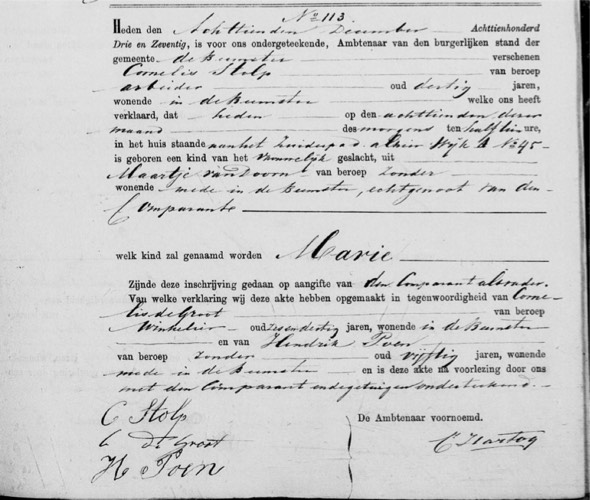 No 113.
Heden den Achttienden December Achttienhonderd
Drie en Zeventig, is voor ons ondergeteekende, Ambtenaar van den burgerlijken stand der
gemeente de Beemster verschenen
Cornelis Stolp van beroep
arbeider oud dertig jaren,
wonende in de Beemster welke ons heeft
verklaard, dat heden op den achttienden dezer
maand des morgens ten half tien ure,
in het huis staande aan het Zuiderpad alhier Wijk B No 45
is geboren een kind van het vrouwelijk geslacht, uit
Maartje van Doorn van beroep zonder
wonende mede in de Beemster, echtgenoot van den
Comparante
welk kind zal genaamd worden Marie
Zijnde deze inschrijving gedaan op aangifte van den Comparant als vader.
Van welke verklaring wij deze akte hebben opgemaakt in tegenwoordigheid van Corne-
lis de Groot van beroep
Winkelier oud zesendertig jaren, wonende in de Beemster
en van Hendrik Poen
van beroep zonder oud vijftig jaren, wonende
mede in de Beemster en is deze akte na voorlezing door ons
met den Comparant en de getuigen onderteekend.
C Stolp
De Ambtenaar voornoemd.
C de Groot
C Hartog
H Poen